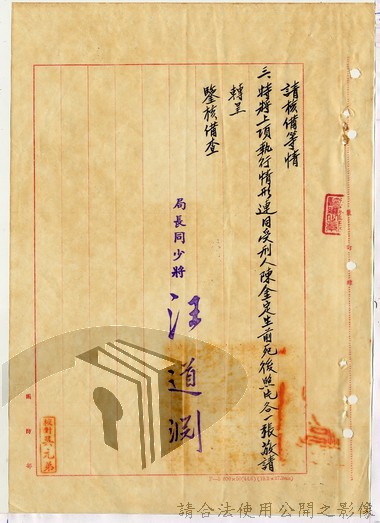 請核備等情
三、特將上項執行情形連同受刑人陳金定生前死後照片各一張敬請
轉呈
鑒核備查
局長同少將 汪道淵
校對吳元弟
請合法使用公開之影像